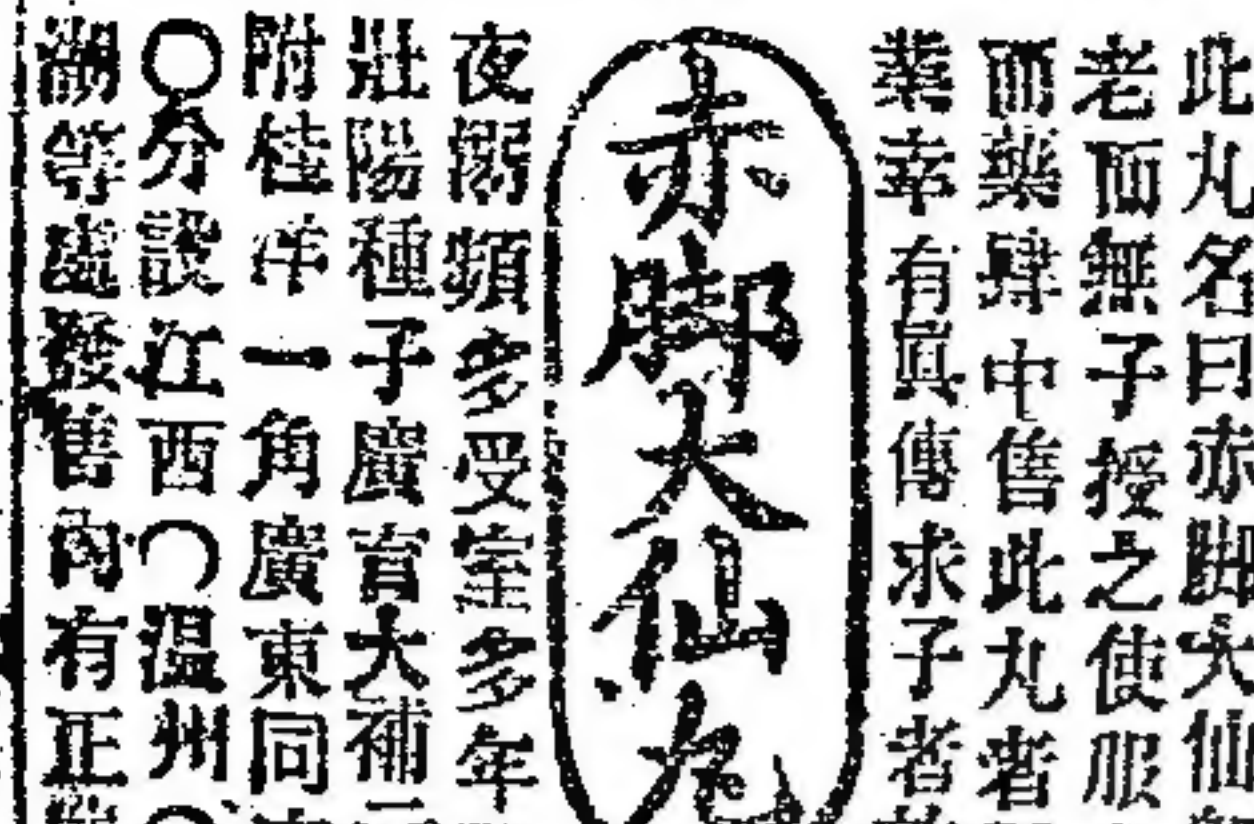 此丸名曰赤脚大仙
老而無子授之使服
而藥肆中售此丸者
業幸有眞傳求子者
赤脚大仙丸
夜溺頻多受室多年
壯陽種子廣育大補
附桂洋一角廣東同
〇分設江西〇溫州〇
湖等處發售內有正